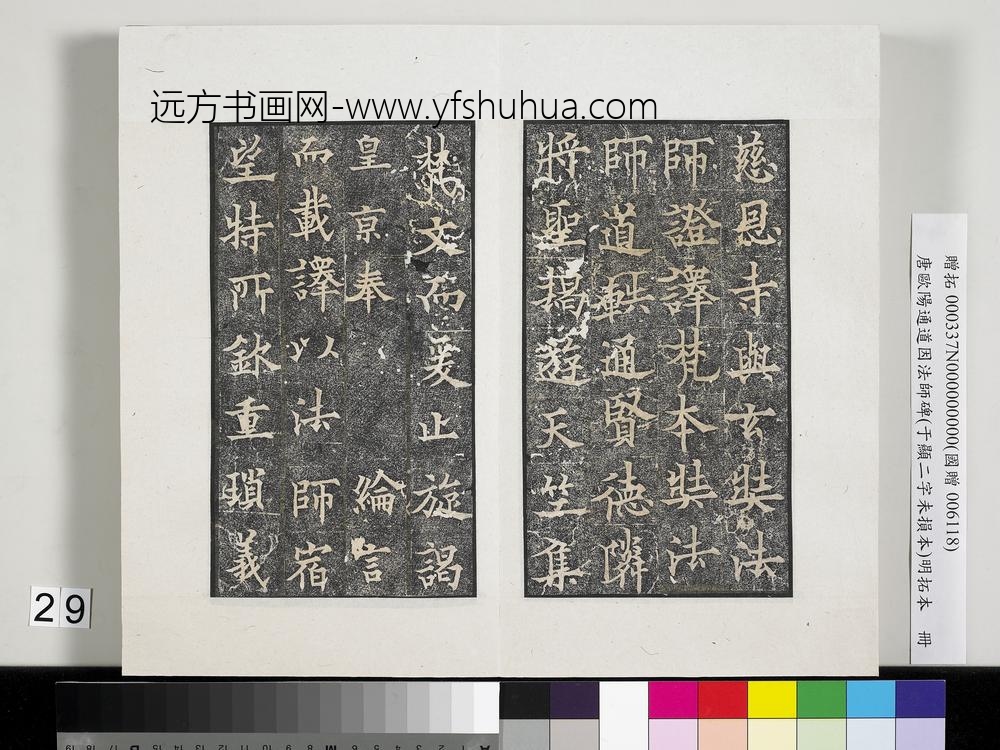 远方书画网-www.yfshuhua.com
慈恩寺與玄奘法
師證譯梵本奘法
師道軼通賢德隣
將聖搞遊天竺集
梵文而爰止旋謁
皇亰奉 綸言
而載譯以法師宿
望特所欽重瑣義
贈拓 000337N000000000(國贈 006118)
唐歐陽通道因法師碑(于顯二字未損本)明拓本 冊
29